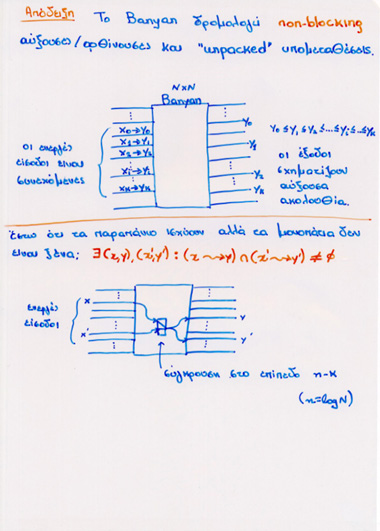 Απόδειξη Το Banyan δρομολογεί non-blocking
αύξουσες/φθίνουσες και "unpacked" υπομεταθέσεις.
N×N
Banyan
οι ενεργές
είσοδοι είναι
συνεχόμενες
x₀→y₀
x₁→y₁
x₂→y₂
xᵢ→yᵢ
xₖ→yₖ
y₀
y₁
y₂
yₖ
y₀ ≤ y₁ ≤ y₂ ≤...≤ yᵢ ≤...≤ yₖ
οι έξοδοι
σχηματίζουν
αύξουσα
ακολουθία.
Έστω ότι τα παραπάνω ισχύουν αλλά τα μονοπάτια δεν
είναι ξένα: ∃(x,y), (x',y') : (x⇝y) ∩ (x'⇝y') ≠ ∅
ενεργές
είσοδοι
x
x'
y
y'
σύγκρουση στο επίπεδο n-k
(n=logN)